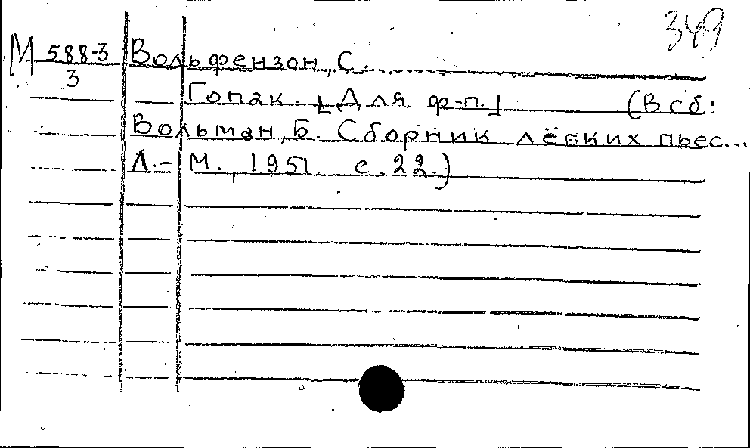 349
М 588-3 Вольфензон, С.
3
Гопак. [Для ф-п.] (В сб:
Вольман, Б. Сборник лёгких пьес...
Л.-М., 1951. с. 22.)